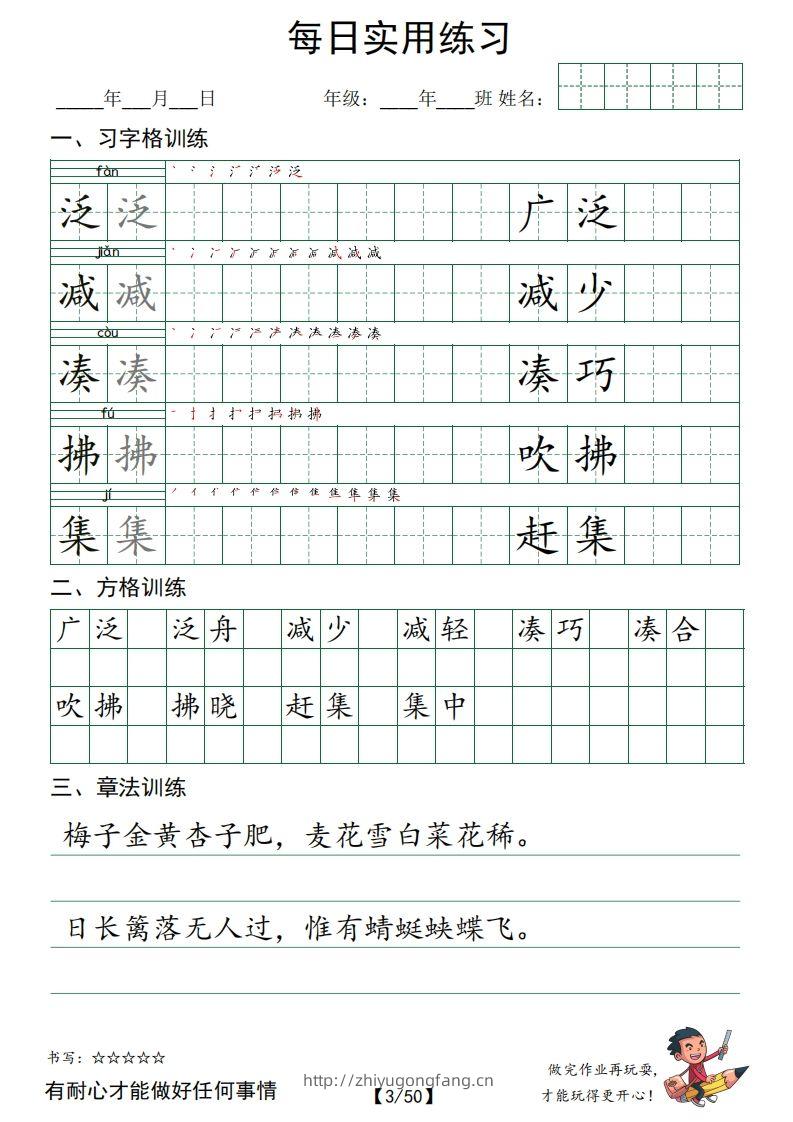 每日实用练习
_____年___月___日 年级：____年____班 姓名：
一、习字格训练
fàn
泛 泛 广 泛
jiǎn
减 减 减 少
còu
凑 凑 凑 巧
fú
拂 拂 吹 拂
jí
集 集 赶 集
二、方格训练
广泛 泛舟 减少 减轻 凑巧 凑合
吹拂 拂晓 赶集 集中
三、章法训练
梅子金黄杏子肥，麦花雪白菜花稀。
日长篱落无人过，惟有蜻蜓蛱蝶飞。
书写：☆☆☆☆☆
有耐心才能做好任何事情
http://zhiyugongfang.cn
【3/50】
做完作业再玩耍，
才能玩得更开心！